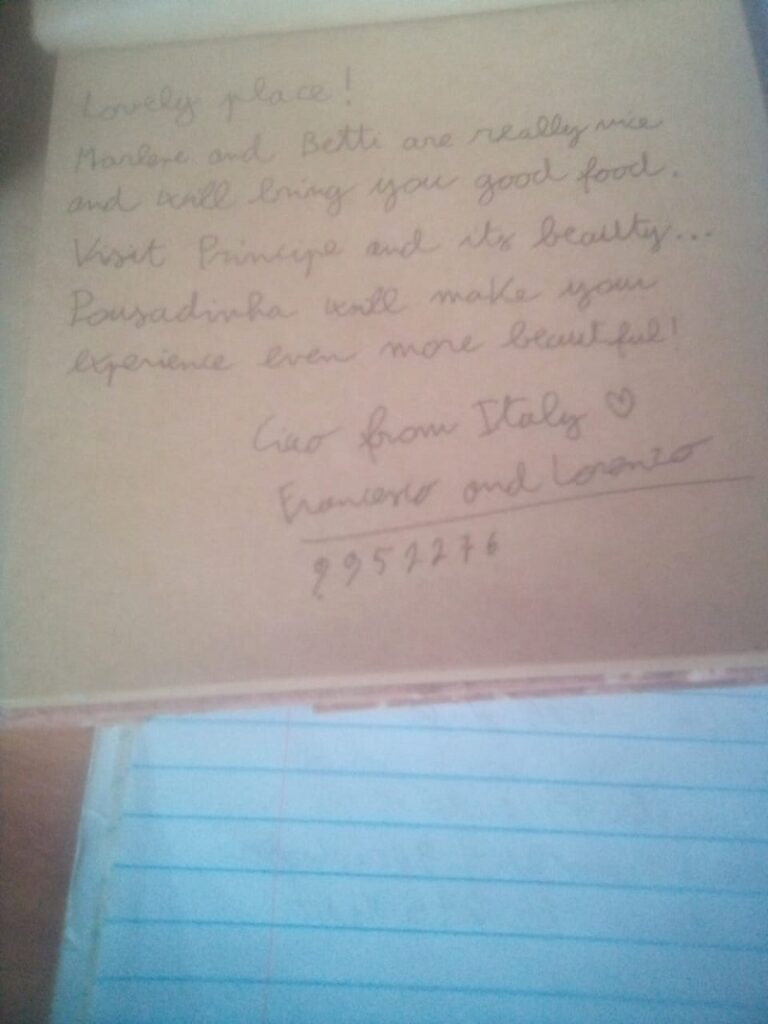 Lovely place!
Marlene and Betti are really nice
and will bring you good food.
Visit Principe and its beauty...
Pousadinha will make your
experience even more beautiful!
Ciao from Italy ♡
Francesco and Lorenzo
9952276